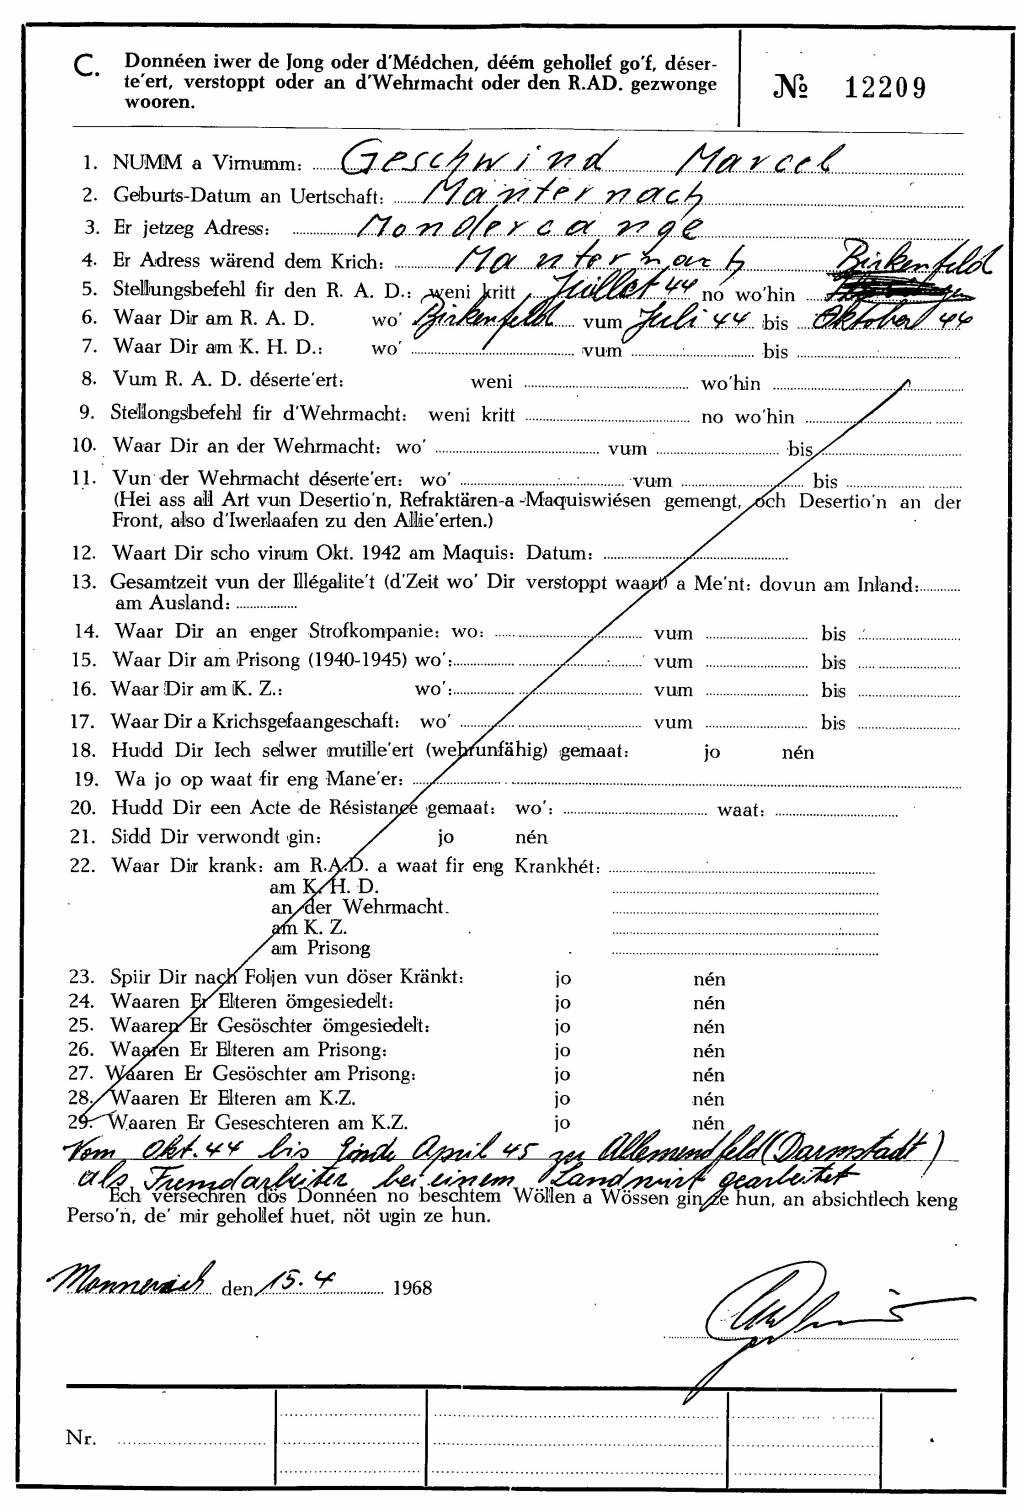 C. Donnéen iwer de Jong oder d'Médchen, déém gehollef go'f, déser-
te'ert, verstoppt oder an d'Wehrmacht oder den R.AD. gezwonge
wooren.
№ 12209
1. NUMM a Virnumm: Geschwind Marcel
2. Geburts-Datum an Uertschaft: Manternach
3. Er jetzeg Adress: Mondercange
4. Er Adress wärend dem Krich: Manternach Birkenfeld
5. Stellungsbefehl fir den R. A. D.: weni kritt Juillet 44 no wo'hin
6. Waar Dir am R. A. D. wo' Birkenfeld vum Juli 44 bis Oktober 44
7. Waar Dir am K. H. D.: wo' vum bis
8. Vum R. A. D. déserte'ert: weni wo'hin
9. Stellongsbefehl fir d'Wehrmacht: weni kritt no wo'hin
10. Waar Dir an der Wehrmacht: wo' vum bis
11. Vun der Wehrmacht déserte'ert: wo' vum bis
(Hei ass all Art vun Desertio'n, Refraktären-a -Maquiswiésen gemengt, och Desertio'n an der
Front, also d'Iwerlaafen zu den Allie'erten.)
12. Waart Dir scho virum Okt. 1942 am Maquis: Datum:
13. Gesamtzeit vun der Illégalite't (d'Zeit wo' Dir verstoppt waart) a Me'nt: dovun am Inland:
am Ausland:
14. Waar Dir an enger Strofkompanie: wo: vum bis
15. Waar Dir am Prisong (1940-1945) wo': vum bis
16. Waar Dir am K. Z.: wo': vum bis
17. Waar Dir a Krichsgefaangeschaft: wo' vum bis
18. Hudd Dir Iech selwer mutille'ert (wehrunfähig) gemaat: jo nén
19. Wa jo op waat fir eng Mane'er:
20. Hudd Dir een Acte de Résistance gemaat: wo': waat:
21. Sidd Dir verwondt gin: jo nén
22. Waar Dir krank: am R.A.D. a waat fir eng Krankhét:
am K. H. D.
an der Wehrmacht.
am K. Z.
am Prisong
23. Spiir Dir nach Foljen vun döser Kränkt: jo nén
24. Waaren Er Elteren ömgesiedelt: jo nén
25. Waaren Er Gesöschter ömgesiedelt: jo nén
26. Waaren Er Elteren am Prisong: jo nén
27. Waaren Er Gesöschter am Prisong: jo nén
28. Waaren Er Elteren am K.Z. jo nén
29. Waaren Er Geseschteren am K.Z. jo nén
Vom Okt. 44 bis Ende April 45 zu Allemendfeld (Darmstadt)
als Fremdarbeiter bei einem Landwirt gearbeitet
Ech versechren dös Donnéen no beschtem Wöllen a Wössen gin ze hun, an absichtlech keng
Perso'n, de' mir gehollef huet, nöt ugin ze hun.
Monnerich den 15.4 1968
Nr.